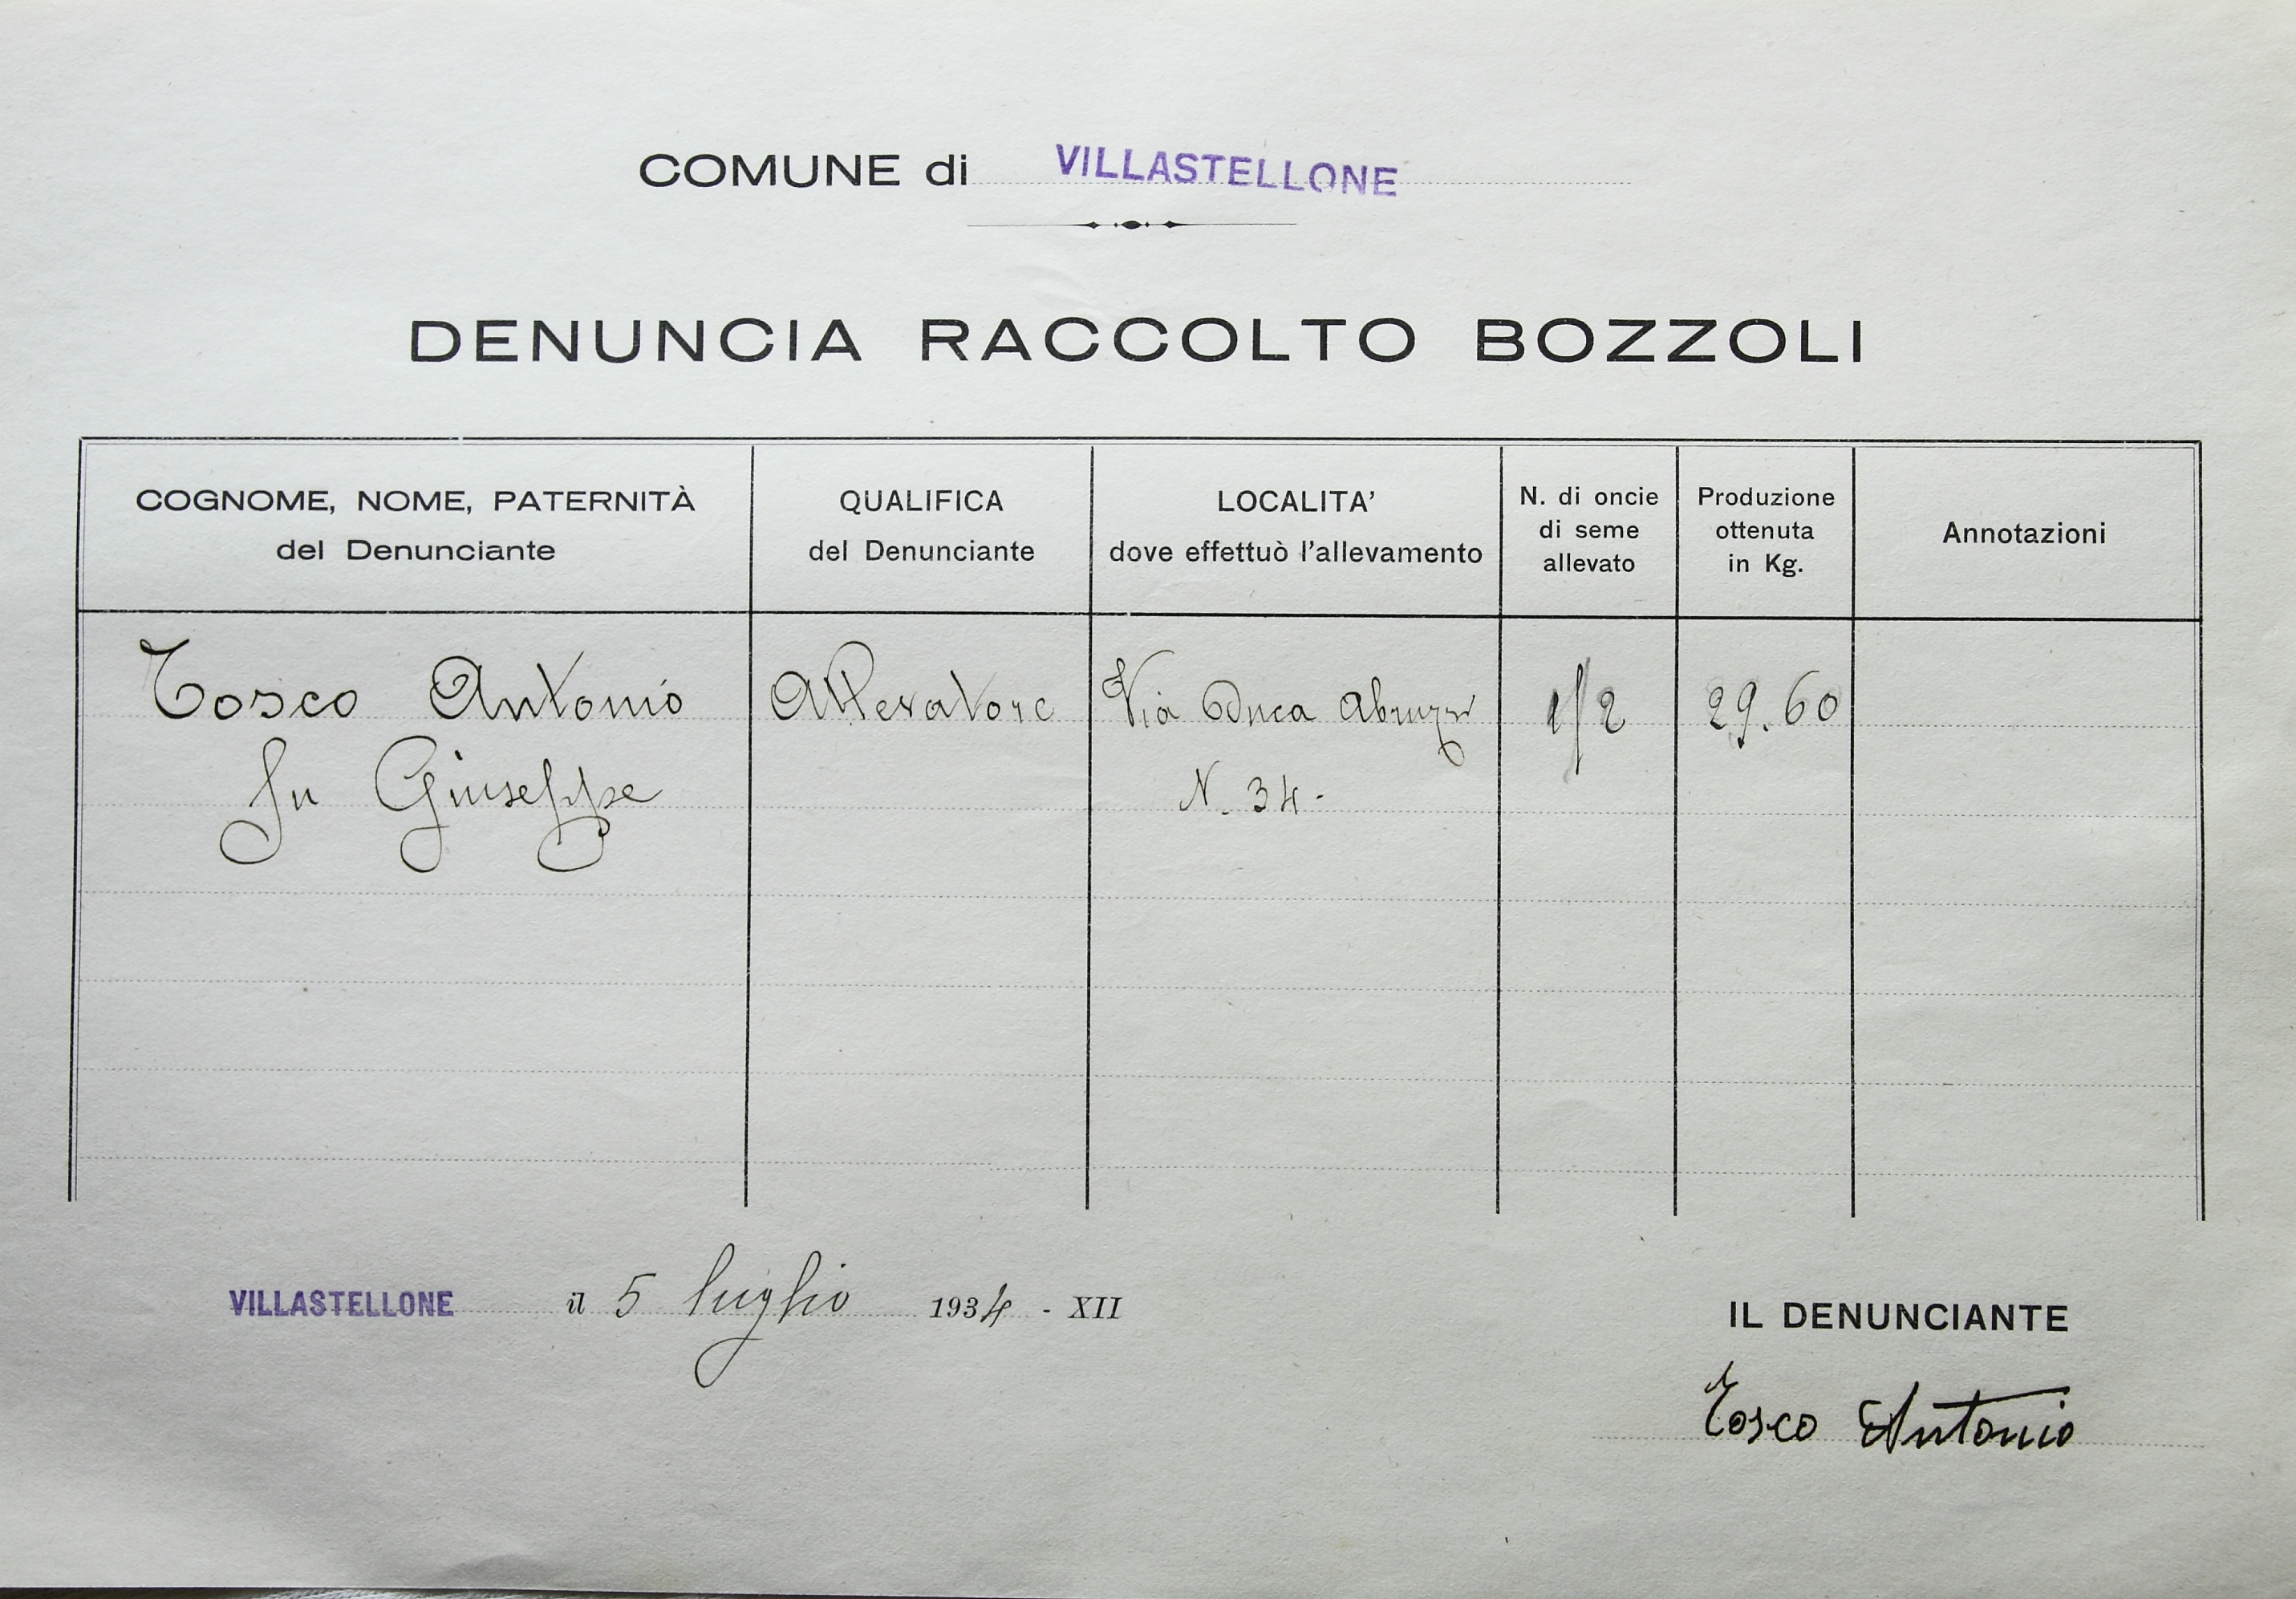 COMUNE di VILLASTELLONE
DENUNCIA RACCOLTO BOZZOLI
COGNOME, NOME, PATERNITÀ
del Denunciante
QUALIFICA
del Denunciante
LOCALITA'
dove effettuò l'allevamento
N. di oncie
di seme
allevato
Produzione
ottenuta
in Kg.
Annotazioni
Tosco Antonio Allevatore Via Duca Abruzzi 1/2 29.60
fu Giuseppe N. 34-
VILLASTELLONE il 5 luglio 1934 - XII
IL DENUNCIANTE
Tosco Antonio